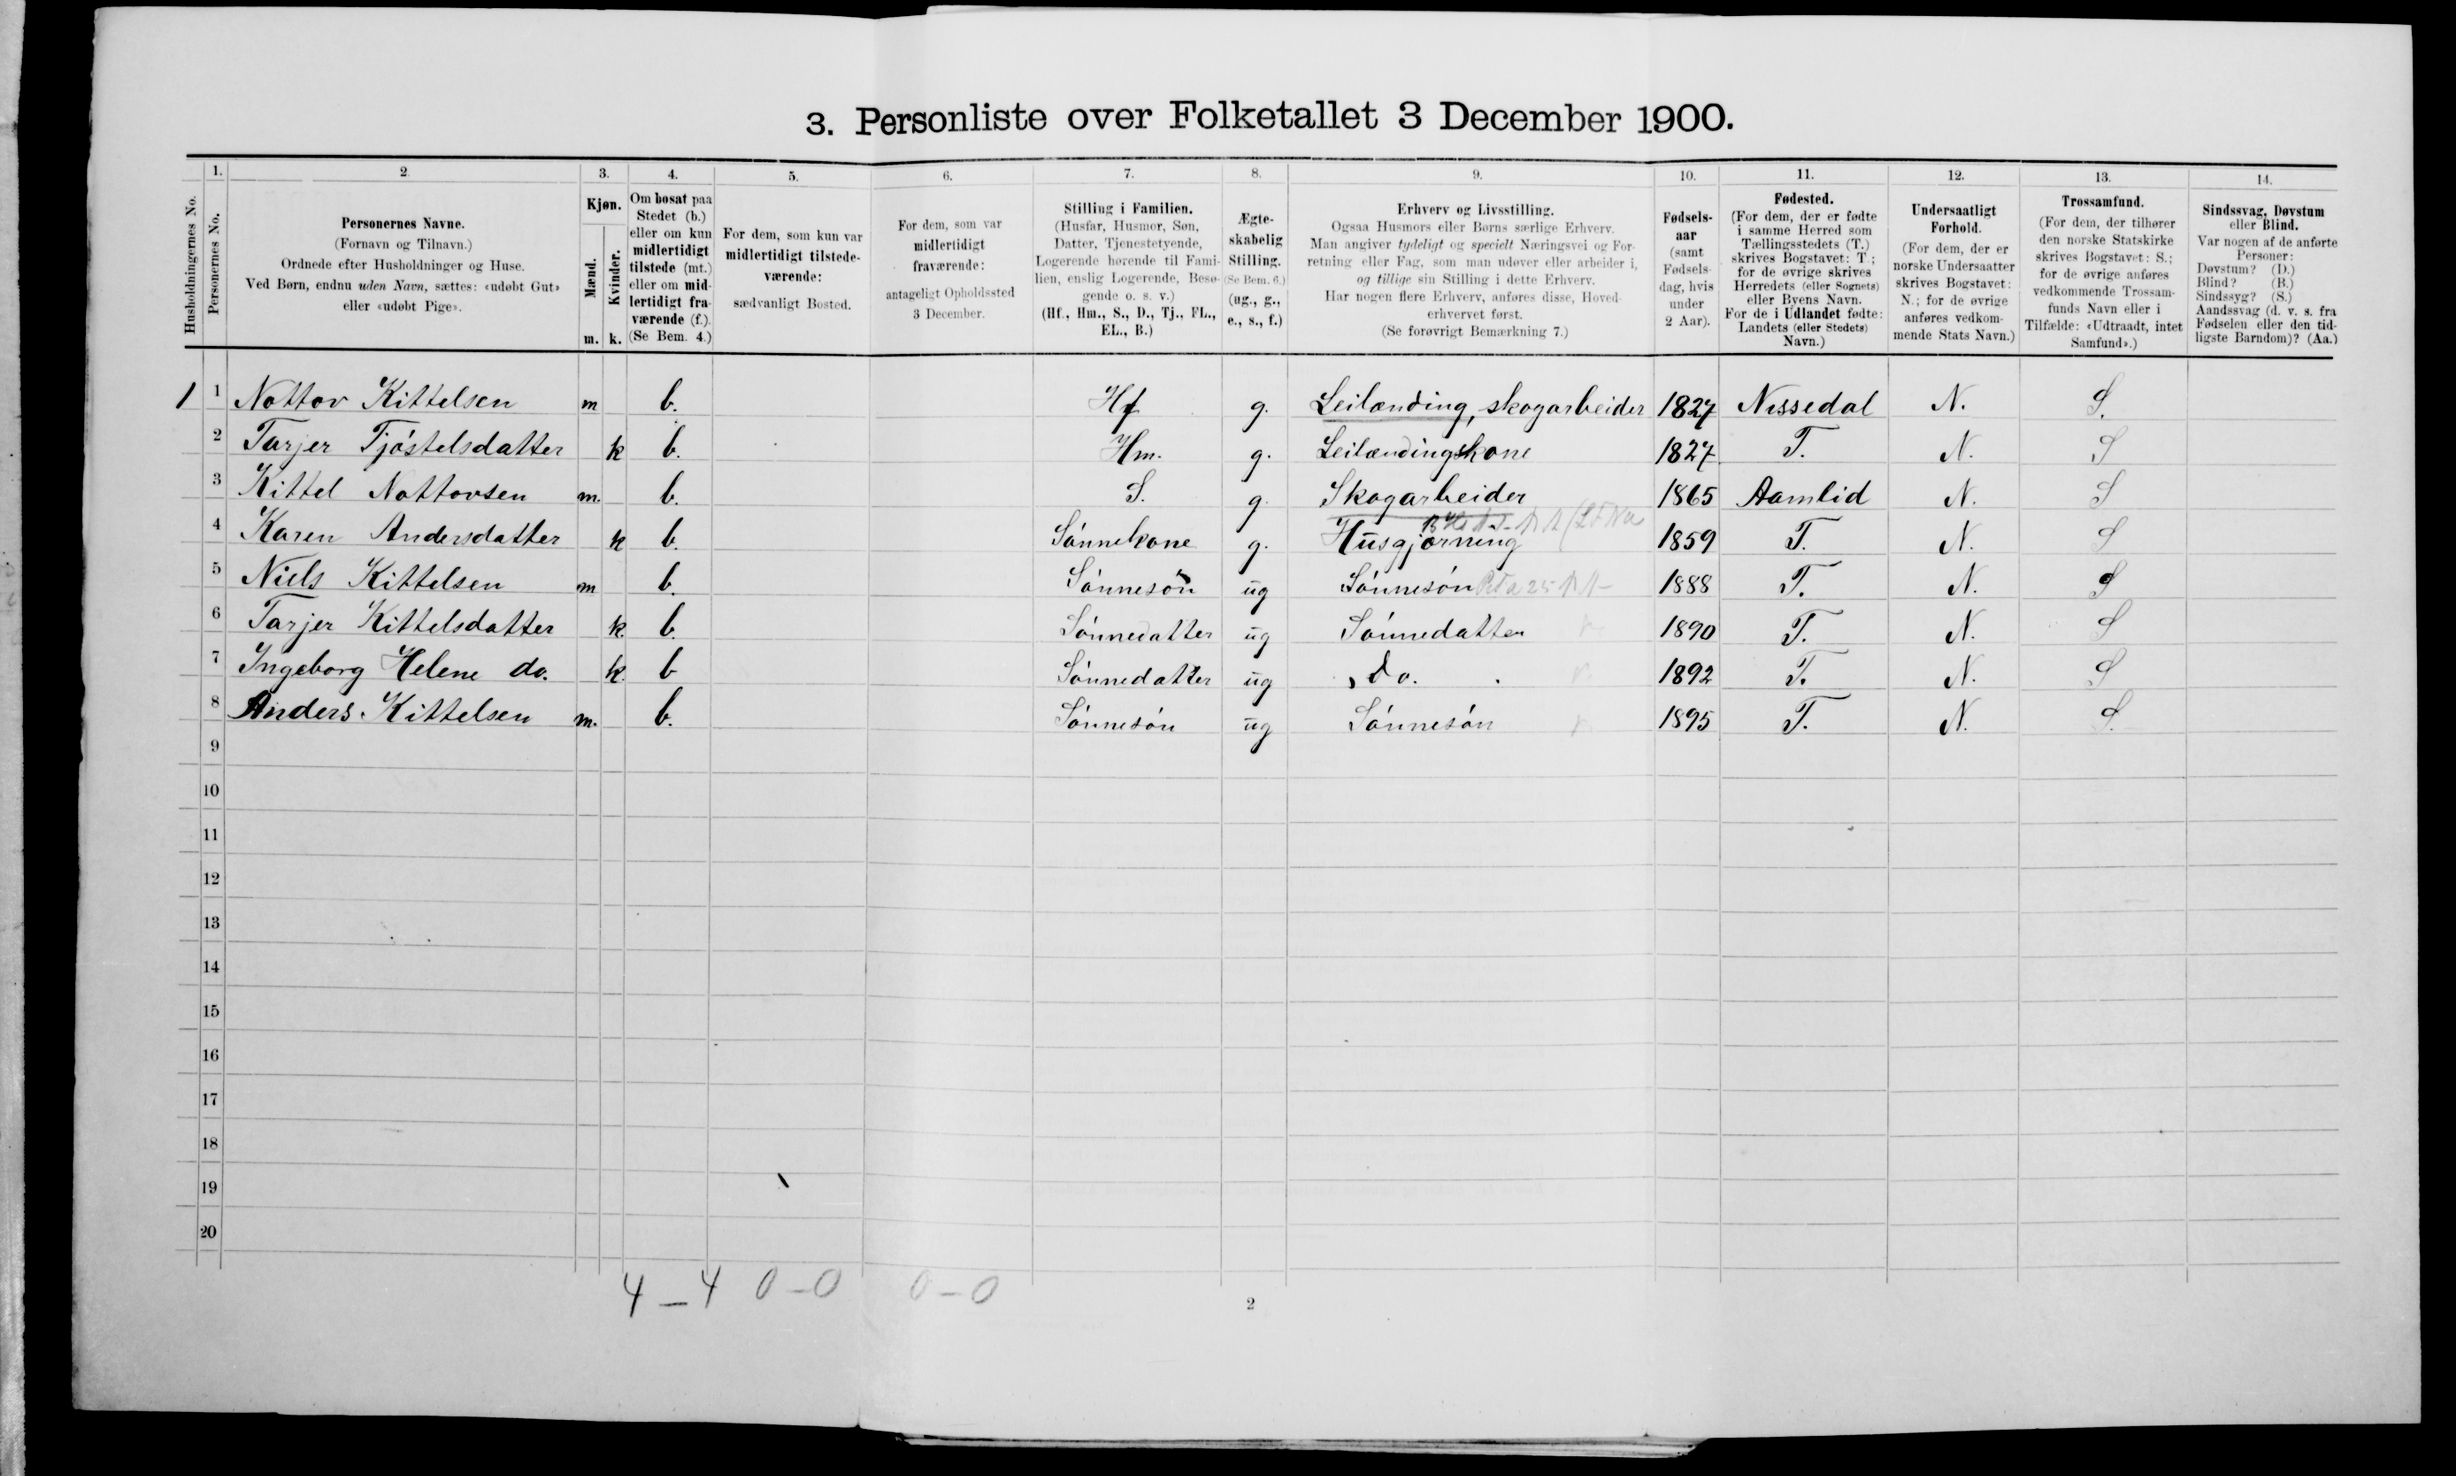 3. Personliste over Folketallet 3 December 1900.
Husholdningernes No.
1.
Personernes No.
2.
Personernes Navne.
(Fornavn og Tilnavn.)
Ordnede efter Husholdninger og Huse.
Ved Børn, endnu uden Navn, sættes: «udøbt Gut»
eller «udøbt Pige».
3.
Kjøn.
Mænd.
Kvinder.
m. k.
4.
Om bosat paa
Stedet (b.)
eller om kun
midlertidigt
tilstede (mt.)
eller om mid-
lertidigt fra-
værende (f.).
(Se Bem. 4.)
5.
For dem, som kun var
midlertidigt tilstede-
værende:
sædvanligt Bosted.
6.
For dem, som var
midlertidigt
fraværende:
antageligt Opholdssted
3 December.
7.
Stilling i Familien.
(Husfar, Husmor, Søn,
Datter, Tjenestetyende,
Logerende hørende til Fami-
lien, enslig Logerende, Besø-
gende o. s. v.)
(Hf., Hm., S., D., Tj., FL.,
EL., B.)
8.
Ægte-
skabelig
Stilling.
(Se Bem. 6.)
(ug., g.,
e., s., f.)
9.
Erhverv og Livsstilling.
Ogsaa Husmors eller Børns særlige Erhverv.
Man angiver tydeligt og specielt Næringsvei og For-
retning eller Fag, som man udøver eller arbeider i,
og tillige sin Stilling i dette Erhverv.
Har nogen flere Erhverv, anføres disse, Hoved-
erhvervet først.
(Se forøvrigt Bemærkning 7.)
10.
Fødsels-
aar
(samt
Fødsels-
dag, hvis
under
2 Aar).
11.
Fødested.
(For dem, der er fødte
i samme Herred som
Tællingsstedets (T.)
skrives Bogstavet: T.;
for de øvrige skrives
Herredets (eller Sognets)
eller Byens Navn.
For de i Udlandet fødte:
Landets (eller Stedets)
Navn.)
12.
Undersaatligt
Forhold.
(For dem, der er
norske Undersaatter
skrives Bogstavet:
N.; for de øvrige
anføres vedkom-
mende Stats Navn.)
13.
Trossamfund.
(For dem, der tilhører
den norske Statskirke
skrives Bogstavet: S.;
for de øvrige anføres
vedkommende Trossam-
funds Navn eller i
Tilfælde: «Udtraadt, intet
Samfund».)
14.
Sindssvag, Døvstum
eller Blind.
Var nogen af de anførte
Personer:
Døvstum? (D.)
Blind? (B.)
Sindssyg? (S.)
Aandssvag (d. v. s. fra
Fødselen eller den tid-
ligste Barndom)? (Aa.)
1 1 Nottov Kittelsen m b. Hf g. Leilænding, skogarbeider 1827 Nissedal N. S.
2 Tarjer Tjóstelsdatter k b. Hm. g. Leilændingskone 1827 T. N. S
3 Kittel Nottovsen m. b. S. g. Skogarbeider 1865 Aamlid N. S
4 Karen Andersdatter k b. Sónnekone g. Husgjerning 1859 T. N. S
5 Niels Kittelsen m b. Sónnesón ug Sónnesón 1888 T. N. S
6 Tarjer Kittelsdatter k. b. Sónnedatter ug Sónnedatter 1890 T. N. S
7 Ingeborg Helene do. k. b Sónnedatter ug do. 1892 T. N. S
8 Anders Kittelsen m. b. Sónnesón ug Sónnesón 1895 T. N. S.
9
10
11
12
13
14
15
16
17
18
19
20
4 – 4 0 – 0 0 – 0
2